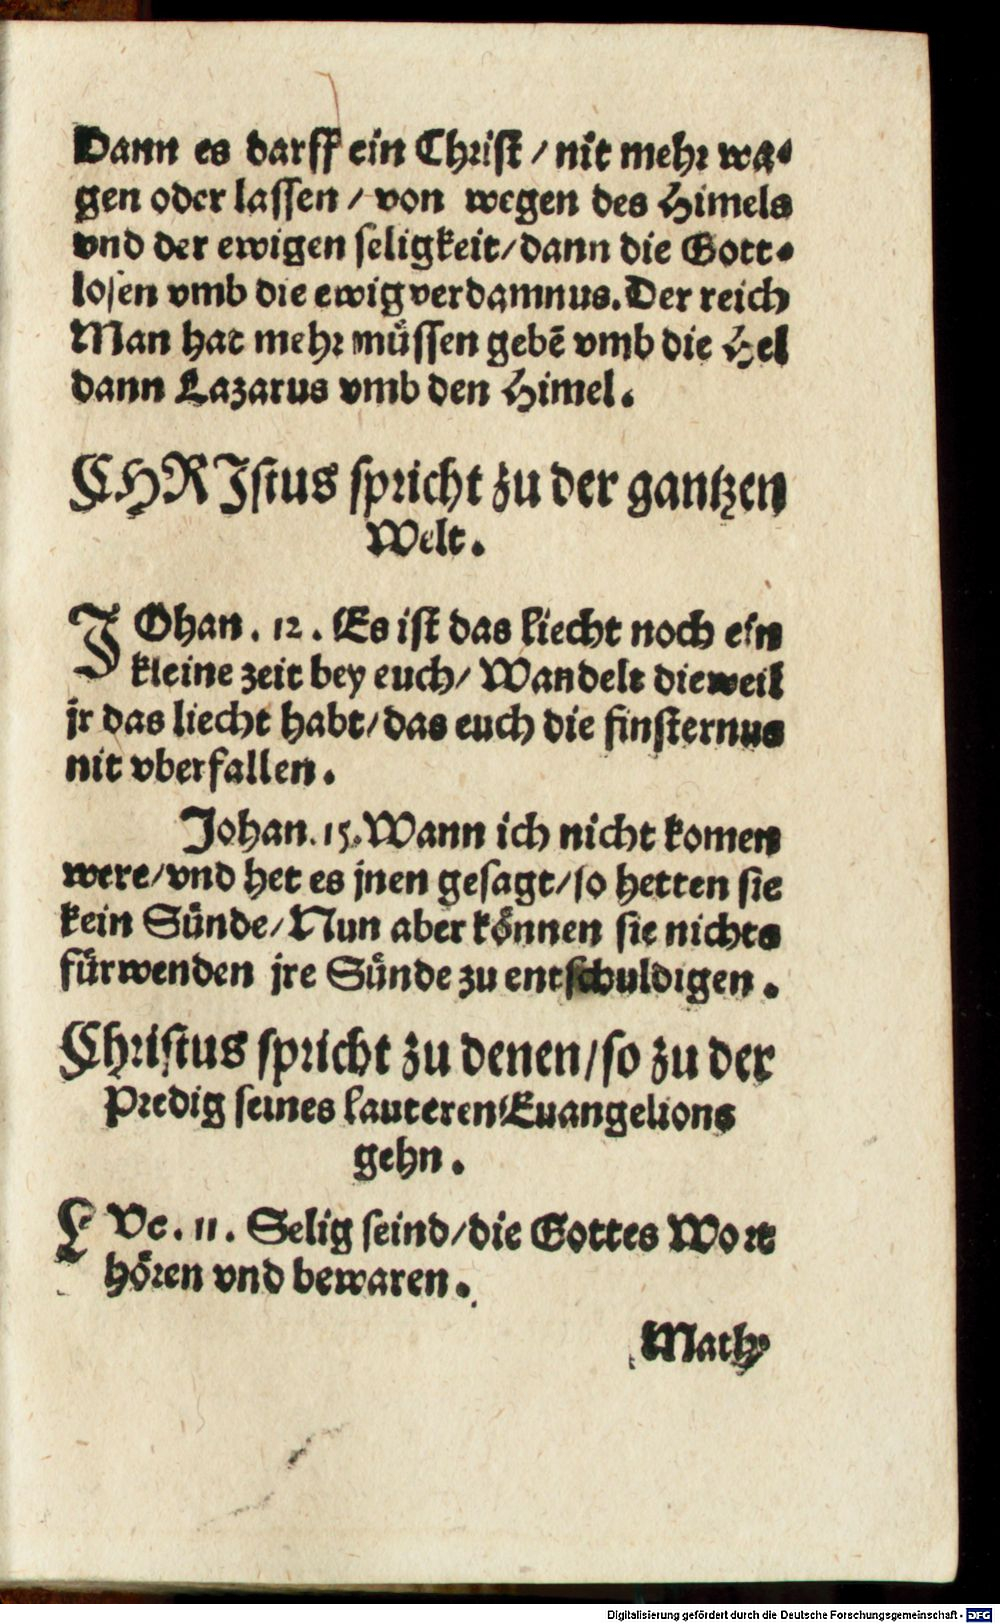 Dann es darff ein Christ / nit mehr wa-
gen oder lassen / von wegen des Himels
vnd der ewigen seligkeit / dann die Gott-
losen vmb die ewig verdamnus. Der reich
Man hat mehr müssen gebē vmb die Hel
dann Lazarus vmb den Himel.
CHRIstus spricht zu der gantzen
Welt.
JOhan. 12. Es ist das liecht noch ein
kleine zeit bey euch / Wandelt dieweil
jr das liecht habt / das euch die finsternus
nit vberfallen.
Johan. 15. Wann ich nicht komen
were / vnd het es jnen gesagt / so hetten sie
kein Sünde / Nun aber können sie nichts
fürwenden jre Sünde zu entschuldigen.
Christus spricht zu denen / so zu der
Predig seines lauteren Euangelions
gehn.
LVc. 11. Selig seind / die Gottes Wort
hören vnd bewaren.
Math.
Digitalisierung gefördert durch die Deutsche Forschungsgemeinschaft - DFG